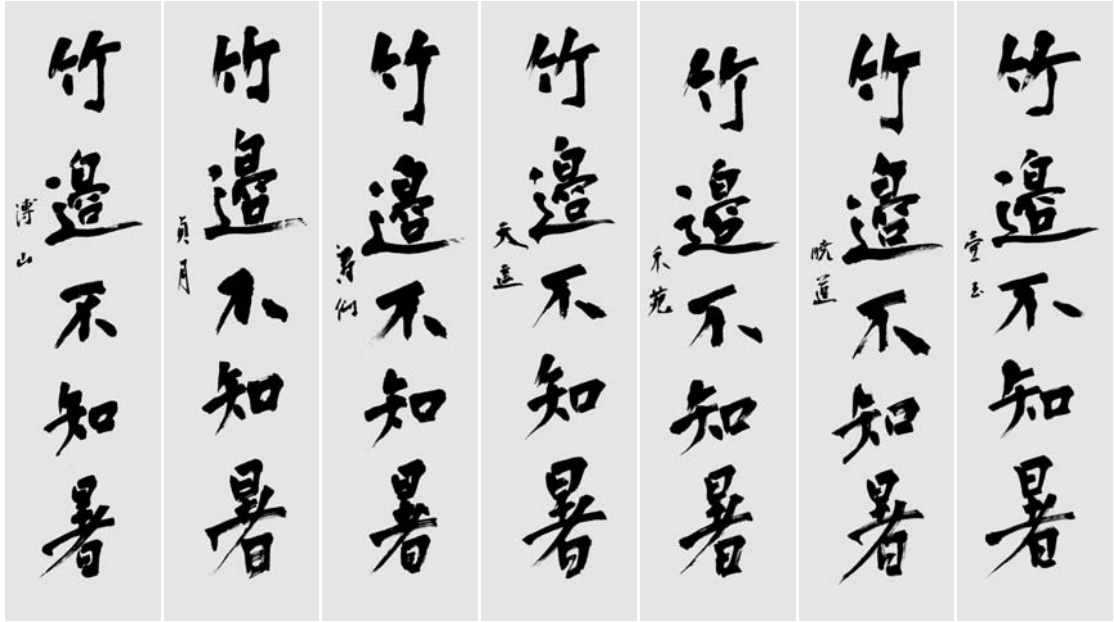 竹邊不知暑
山
竹邊不知暑
貞月
竹邊不知暑
竹邊不知暑
天
竹邊不知暑
禾苑
竹邊不知暑
竹邊不知暑
玉